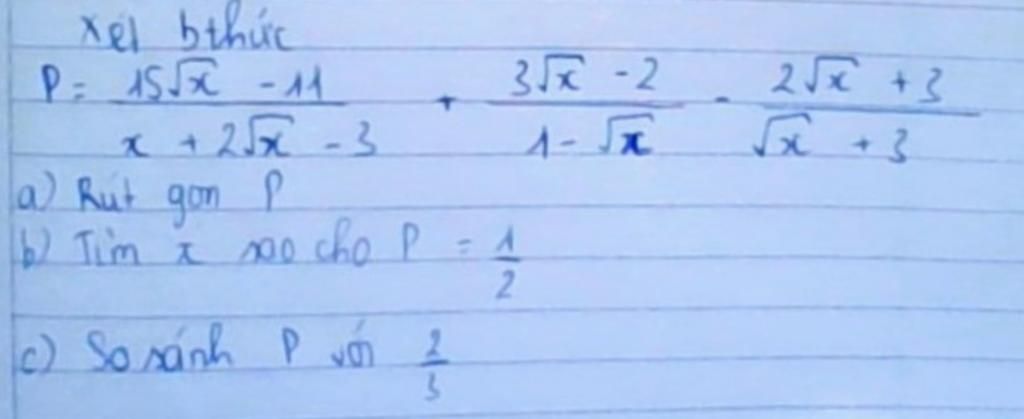 Xét bthức
P = \frac{15\sqrt{x} - 11}{x + 2\sqrt{x} - 3} + \frac{3\sqrt{x} - 2}{1 - \sqrt{x}} - \frac{2\sqrt{x} + 3}{\sqrt{x} + 3}
a) Rút gọn P
b) Tìm x sao cho P = \frac{1}{2}
c) So sánh P với \frac{2}{3}